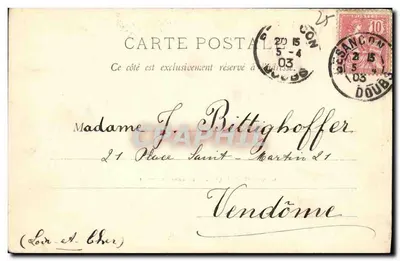 25
CARTE POSTALE
Ce côté est exclusivement réservé à
BESANÇON
21 15
5-4
03
DOUBS
10
BESANÇON
21 15
5-4
03
DOUBS
Madame J. Bittighoffer
21 Place Saint-Martin 21
Vendôme
(Loir-et-Cher)